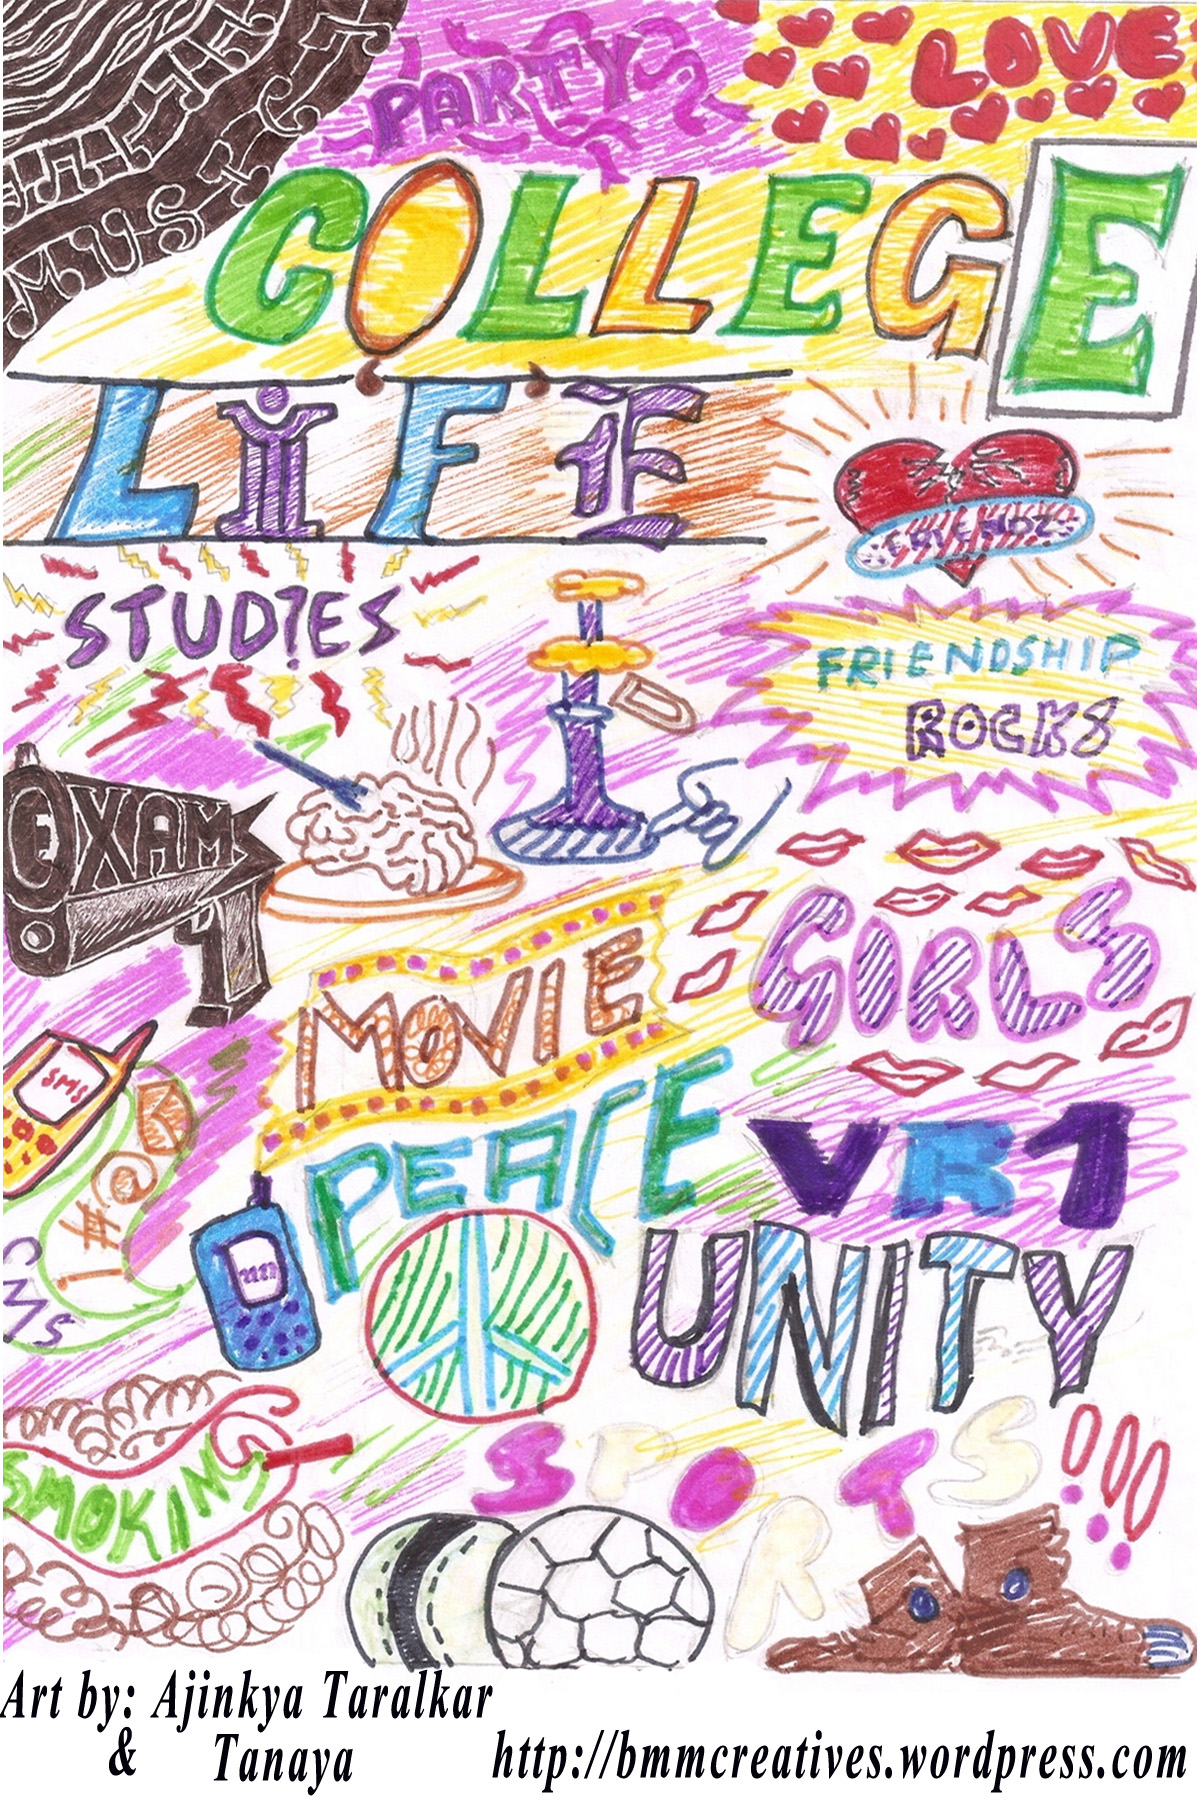 MUSIC
PARTY
LOVE
COLLEGE
LIFE
STUD?ES
FRIENDSHIP
ROCKS
EXAM
MOVIE
GIRLS
SMS
!#@
PEACE
VR1
UNITY
SMS
SMOKING
SPORTS!!!
Art by: Ajinkya Taralkar
& Tanaya
http://bmmcreatives.wordpress.com